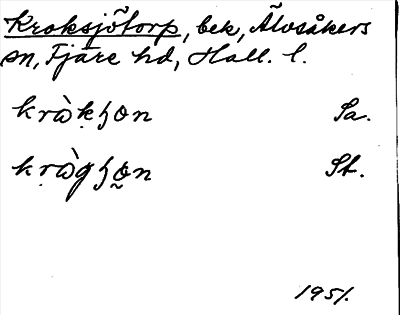 Kroksjötorp, bek, Älvsåkers
sn, Fjäre hd, Hall. l.
krὼkꜧon Sa.
krὼgꜧo̰n St.
1951.